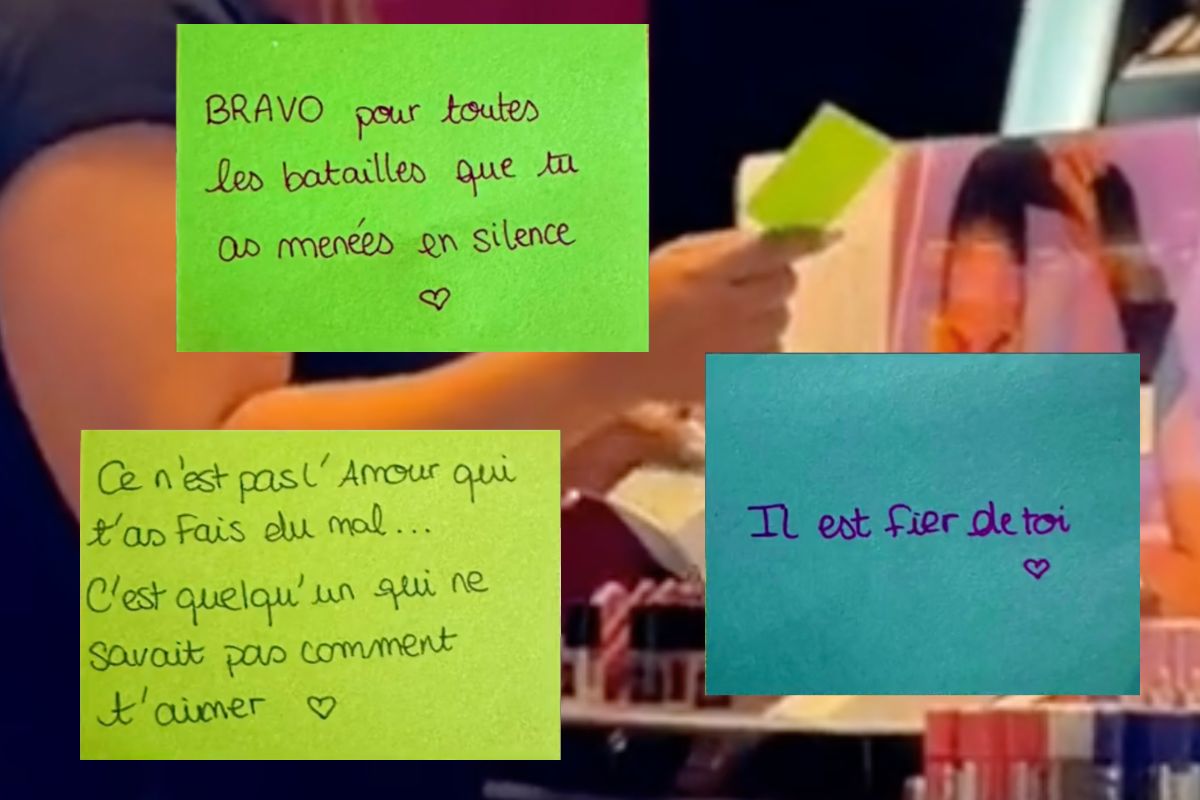 BRAVO pour toutes
les batailles que tu
as menées en silence
♡
Ce n'est pas l'Amour qui
t'as Fais du mal...
C'est quelqu'un qui ne
savait pas comment
t'aimer ♡
Il est fier de toi
♡